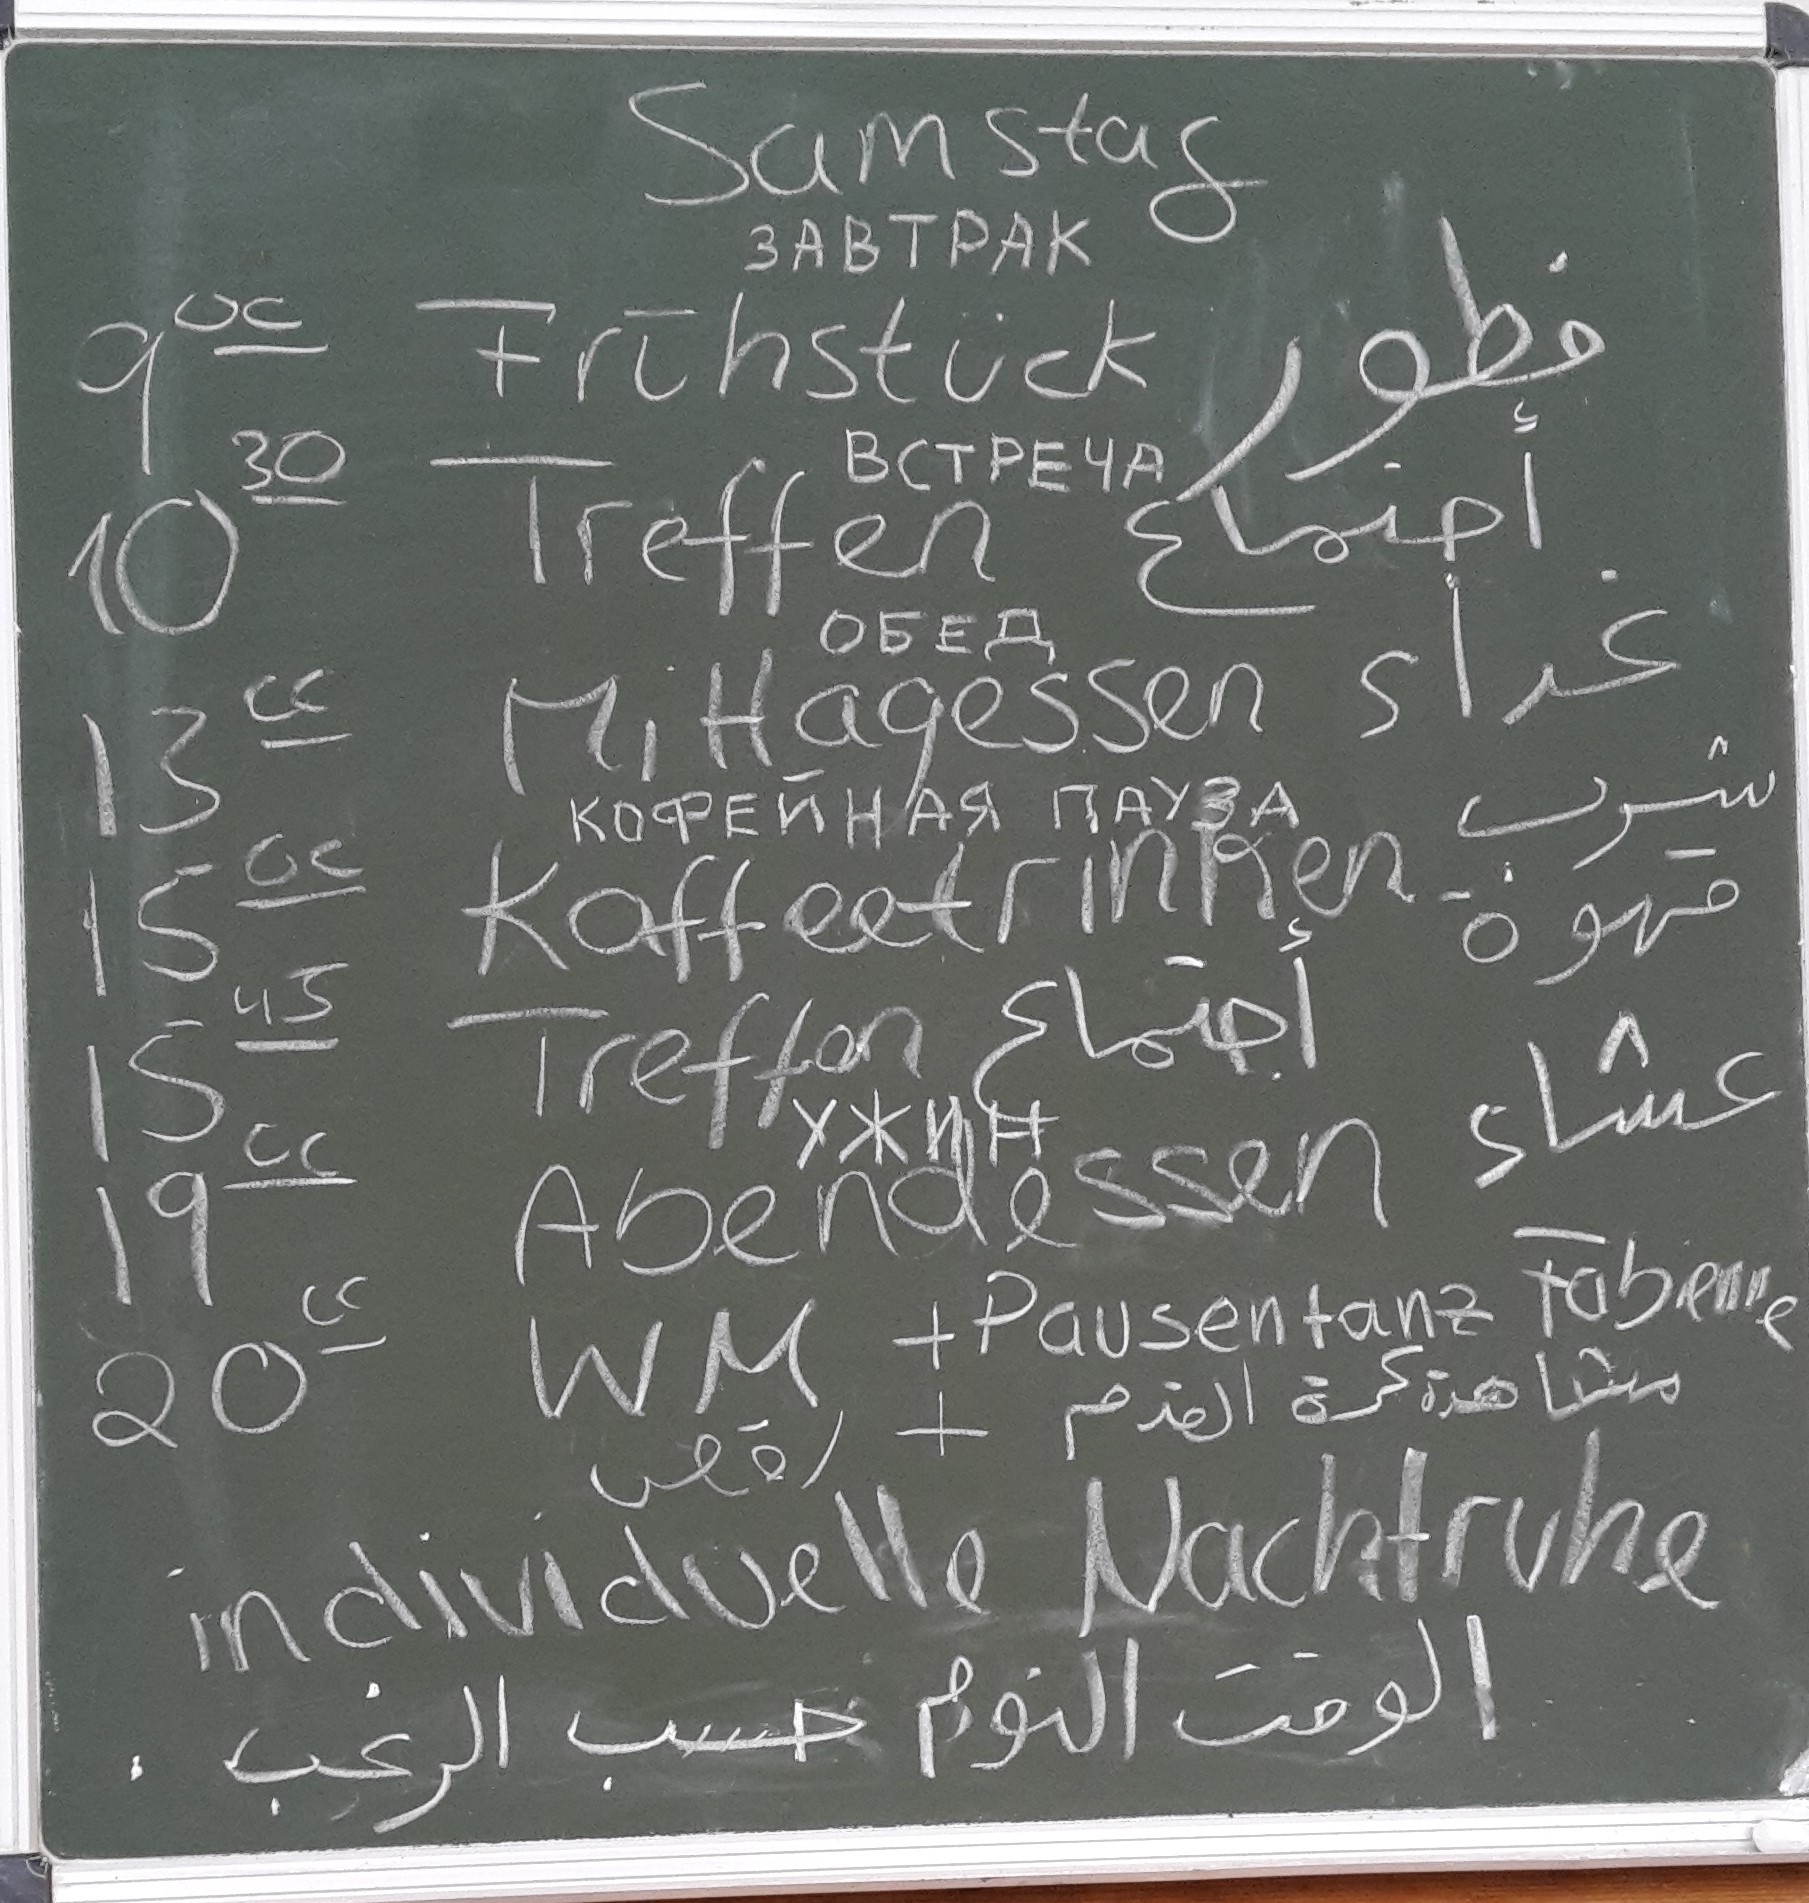 Samstag
ЗАВТРАК
9 00 Frühstück فطور
ВСТРЕЧА
10 30 Treffen أجتماع
ОБЕД
13 00 Mittagessen غداء
КОФЕЙНАЯ ПАУЗА شرب
15 00 Kaffeetrinken - قهوة
15 45 Treffen أجتماع
УЖИН
19 00 Abendessen عشاء
20 00 WM + Pausentanz
رقص + مشاهدة كرة القدم
individuelle Nachtruhe
الوقت النوم حسب الرغب .